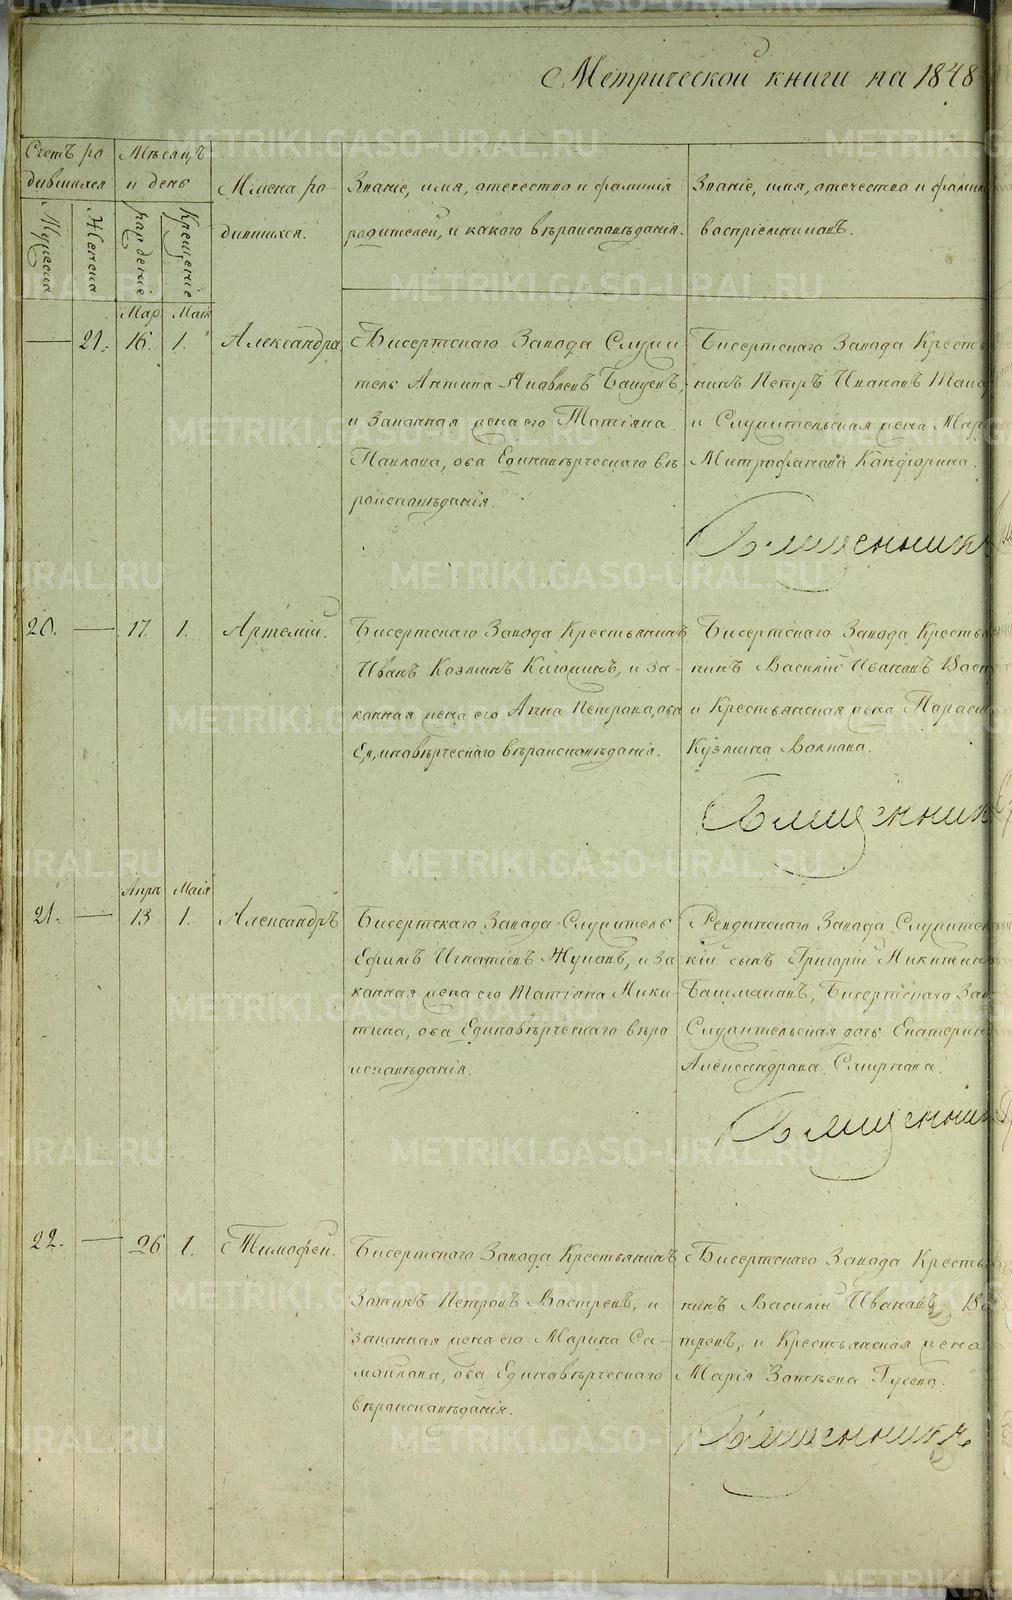 Метрической книги на 1848
Счетъ ро
дившихся
Мѣсяцъ
и день
Имена ро-
дившихся.
Званіе, имя, отечество и фамилія
родителей, и какого вѣроисповѣданія.
Званіе, имя, отечество и фамил
воспріемниковъ.
Мужеска
Женска
рожденіе
Крещеніе
Мар. Маія
21. 16. 1. Александра.
Бисертскаго Завода Служи-
тель Антипа Яковлевъ
и законная жена его Татіяна
Павлова, оба Единовѣрческаго вѣ-
роисповѣданія.
Бисертскаго Завода Кресть
нинъ Петръ Ивановъ
и Служительская жена Мар
Митрофанова
Священникъ
20. 17. 1. Артемій.
Бисертскаго Завода Крестьянинъ
Иванъ Козминъ и за-
конная жена его Анна Петрова, оба
Единовѣрческаго вѣроисповѣданія.
Бисертскаго Завода Кресть
нинъ Василій Ивановъ Вост
и Крестьянская жена
Кузмина Волкова.
Священник
Апрѣ Маія
21. 13 1. Александръ
Бисертскаго Завода Служитель
Ефимъ Игнатіевъ и за
конная жена его Татіяна Ники-
тина, оба Единовѣрческаго вѣро
исповѣданія.
Ревдинскаго Завода Служитель
кій сынъ Григорій Никитин
Башмаковъ, Бисертскаго Зав
Служительская дочь Екатерин
Александрова Смирнова.
Священник
22. 26 1. Тимофей.
Бисертскаго Завода Крестьянинъ
Зотикъ Петровъ Востревъ, и
законная жена его Марина Са-
мойлова, оба Единовѣрческаго
вѣроисповѣданія.
Бисертскаго Завода Кресть
нинъ Василій Ивановъ Вос
тревъ, и Крестьянская жена
Марія Гусева.
Священникъ
METRIKI.GASO-URAL.RU